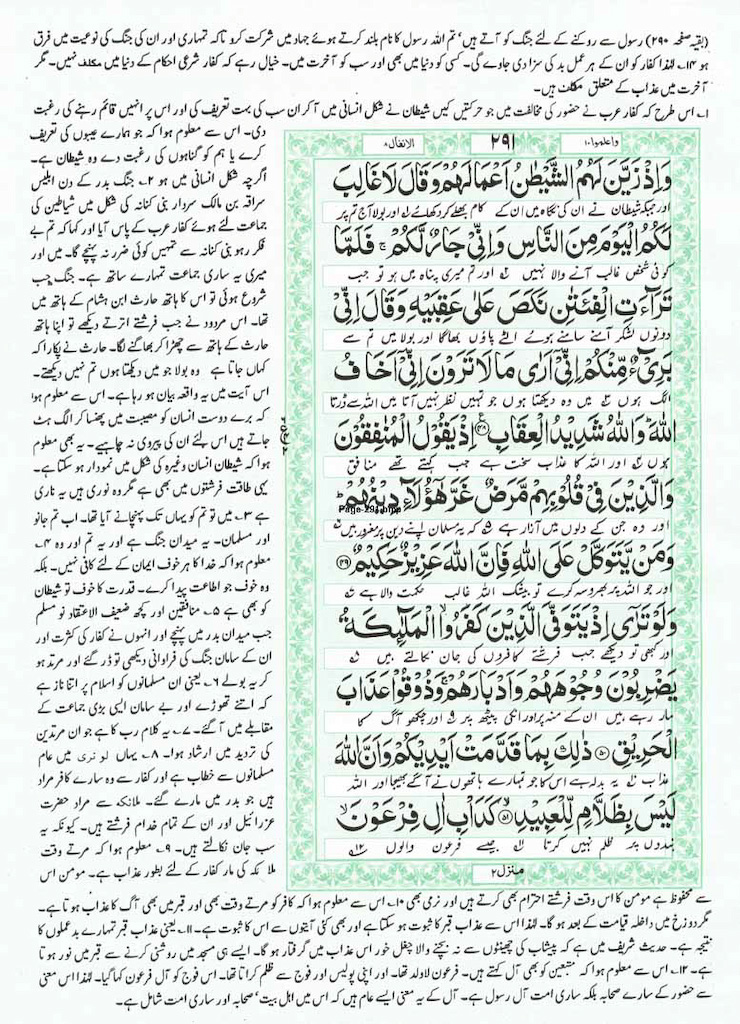 (بقیہ صفحہ ۲۹۰) رسول سے روکنے کے لئے جنگ کو آتے ہیں' تم اللہ رسول کا نام بلند کرتے ہوئے جہاد میں شرکت کرو تاکہ تمہاری اور ان کی جنگ کی نوعیت میں فرق
ہو ۱۴۔ لہٰذا کفار کو ان کے ہر عمل بد کی سزا دی جاوے گی۔ کسی کو دنیا میں بھی اور سب کو آخرت میں۔ خیال رہے کہ کفار شرعی احکام کے دنیا میں مکلف نہیں۔ مگر
آخرت میں عذاب کے متعلق مکلف ہیں۔
۱۔ اس طرح کہ کفار عرب نے حضور کی مخالفت میں جو حرکتیں کیں شیطان نے شکل انسانی میں آکر ان سب کی بہت تعریف کی اور اس پر انہیں قائم رہنے کی رغبت
واعلموا ۱۰
۲۹۱
الانفال ۸
وَاِذْ زَيَّنَ لَهُمُ الشَّيْطٰنُ اَعْمَالَهُمْ وَقَالَ لَا غَالِبَ
اور جبکہ شیطان نے ان کی نگاہ میں ان کے کام بھلے کر دکھائے اور بولا آج تم پر
لَكُمُ الْيَوْمَ مِنَ النَّاسِ وَاِنِّيْ جَارٌ لَّكُمْ ۚ فَلَمَّا
کوئی شخص غالب آنے والا نہیں اور تم میری پناہ میں ہو تو جب
تَرَآءَتِ الْفِئَتٰنِ نَكَصَ عَلٰى عَقِبَيْهِ وَقَالَ اِنِّيْ
دونوں لشکر آمنے سامنے ہوئے الٹے پاؤں بھاگا اور بولا میں تم سے
بَرِيْٓءٌ مِّنْكُمْ اِنِّيْٓ اَرٰى مَا لَا تَرَوْنَ اِنِّيْٓ اَخَافُ
الگ ہوں میں وہ دیکھتا ہوں جو تمہیں نظر نہیں آتا میں اللہ سے ڈرتا
اللّٰهَ ؕ وَاللّٰهُ شَدِيْدُ الْعِقَابِ ﴿۴۸﴾ اِذْ يَقُوْلُ الْمُنٰفِقُوْنَ
ہوں اور اللہ کا عذاب سخت ہے جب کہتے تھے منافق
وَالَّذِيْنَ فِيْ قُلُوْبِهِمْ مَّرَضٌ غَرَّ هٰٓؤُلَآءِ دِيْنُهُمْ ؕ
اور وہ جن کے دلوں میں آزار ہے کہ یہ مسلمان اپنے دین پر مغرور ہیں
وَمَنْ يَّتَوَكَّلْ عَلَى اللّٰهِ فَاِنَّ اللّٰهَ عَزِيْزٌ حَكِيْمٌ ﴿۴۹﴾
اور جو اللہ پر بھروسہ کرے تو بیشک اللہ غالب حکمت والا ہے
وَلَوْ تَرٰٓى اِذْ يَتَوَفَّى الَّذِيْنَ كَفَرُوا ۙ الْمَلٰٓئِكَةُ
اور کبھی تو دیکھے جب فرشتے کافروں کی جان نکالتے ہیں
يَضْرِبُوْنَ وُجُوْهَهُمْ وَاَدْبَارَهُمْ ۚ وَذُوْقُوْا عَذَابَ
مار رہے ہیں ان کے منہ پر اور انکی پیٹھ پر اور چکھو آگ کا
الْحَرِيْقِ ﴿۵۰﴾ ذٰلِكَ بِمَا قَدَّمَتْ اَيْدِيْكُمْ وَاَنَّ اللّٰهَ
عذاب یہ بدلہ ہے اس کا جو تمہارے ہاتھوں نے آگے بھیجا اور اللہ
لَيْسَ بِظَلَّامٍ لِّلْعَبِيْدِ ﴿۵۱﴾ كَدَاْبِ اٰلِ فِرْعَوْنَ ۙ
بندوں پر ظلم نہیں کرتا جیسے فرعون والوں ۱۲
منزل ۲
دی۔ اس سے معلوم ہوا کہ جو ہمارے عیبوں کی تعریف
کرے یا ہم کو گناہوں کی رغبت دے وہ شیطان ہے۔
اگرچہ شکل انسانی میں ہو ۲۔ جنگ بدر کے دن ابلیس
سراقہ بن مالک سردار بنی کنانہ کی شکل میں شیاطین کی
جماعت لئے ہوئے کفار عرب کے پاس آیا اور کہا کہ تم بے
فکر رہو بنی کنانہ سے تمہیں کوئی ضرر نہ پہنچے گا۔ میں اور
میری یہ ساری جماعت تمہارے ساتھ ہے۔ جنگ جب
شروع ہوئی تو اس کا ہاتھ حارث ابن ہشام کے ہاتھ میں
تھا۔ اس مردود نے جب فرشتے اترتے دیکھے تو اپنا ہاتھ
حارث کے ہاتھ سے چھڑا کر بھاگنے لگا۔ حارث نے پکارا کہ
کہاں جاتا ہے وہ بولا جو میں دیکھتا ہوں تم نہیں دیکھتے۔
اس آیت میں یہ واقعہ بیان ہو رہا ہے۔ اس سے معلوم ہوا
کہ برے دوست انسان کو مصیبت میں پھنسا کر الگ ہٹ
جاتے ہیں اس لئے ان کی پیروی نہ چاہیے۔ یہ بھی معلوم
ہوا کہ شیطان انسان وغیرہ کی شکل میں نمودار ہو سکتا ہے۔
یہی طاقت فرشتوں میں بھی ہے مگر وہ نوری ہیں یہ ناری
ہے ۳۔ میں تو تم کو یہاں تک پہنچانے آیا تھا۔ اب تم جانو
اور مسلمان۔ یہ میدان جنگ ہے اور یہ تم اور وہ ۴۔
معلوم ہوا کہ خدا کا ہر خوف ایمان کے لئے کافی نہیں۔ بلکہ
وہ خوف جو اطاعت پیدا کرے۔ قدرت کا خوف تو شیطان
کو بھی ہے ۵۔ منافقین اور کچھ ضعیف الاعتقاد نو مسلم
جب میدان بدر میں پہنچے اور انہوں نے کفار کی کثرت اور
ان کے سامان جنگ کی فراوانی دیکھی تو ڈر گئے اور مرتد ہو
کر یہ بولے ۶۔ یعنی ان مسلمانوں کو اسلام پر اتنا ناز ہے
کہ اتنے تھوڑے اور بے سامان ایسی بڑی جماعت کے
مقابلے میں آ گئے۔ ۷۔ یہ کلام رب کا ہے جو ان مرتدین
کی تردید میں ارشاد ہوا۔ ۸۔ یہاں لو تری میں عام
مسلمانوں سے خطاب ہے اور کفار سے وہ سارے کافر مراد
ہیں جو بدر میں مارے گئے۔ ملائکہ سے مراد حضرت
عزرائیل اور ان کے تمام خدام فرشتے ہیں۔ کیونکہ یہ
سب جان نکالتے ہیں۔ ۹۔ معلوم ہوا کہ مرتے وقت
ملائکہ کی مار کفار کے لئے بطور عذاب ہے۔ مومن اس
سے محفوظ ہے مومن کا اس وقت فرشتے احترام بھی کرتے ہیں اور نرمی بھی ۱۰۔ اس سے معلوم ہوا کہ کافر کو مرتے وقت بھی اور قبر میں بھی آگ کا عذاب ہوتا ہے۔
مگر دوزخ میں داخلہ قیامت کے بعد ہو گا۔ لہٰذا اس سے عذاب قبر کا ثبوت ہو سکتا ہے اور بھی کئی آیتوں سے اس کا ثبوت ہے۔ ۱۱۔ یعنی عذاب قبر تمہارے بدعملوں کا
نتیجہ ہے۔ حدیث شریف میں ہے کہ پیشاب کی چھینٹوں سے نہ بچنے والا چغل خور اس عذاب میں گرفتار ہو گا۔ ایسے ہی مسجد میں روشنی کرنے سے قبر میں نور ہوتا
ہے۔ ۱۲۔ اس سے معلوم ہوا کہ متبعین کو بھی آل کہتے ہیں۔ فرعون لاولد تھا۔ اور اپنی پولیس اور فوج سے ظلم کراتا تھا۔ اس فوج کو آل فرعون کہا گیا۔ لہٰذا اس معنی
سے حضور کے سارے صحابہ بلکہ ساری امت آل رسول ہے۔ آل کے یہ معنی ایسے عام ہیں کہ اس میں اہل بیت' صحابہ اور ساری امت شامل ہے۔